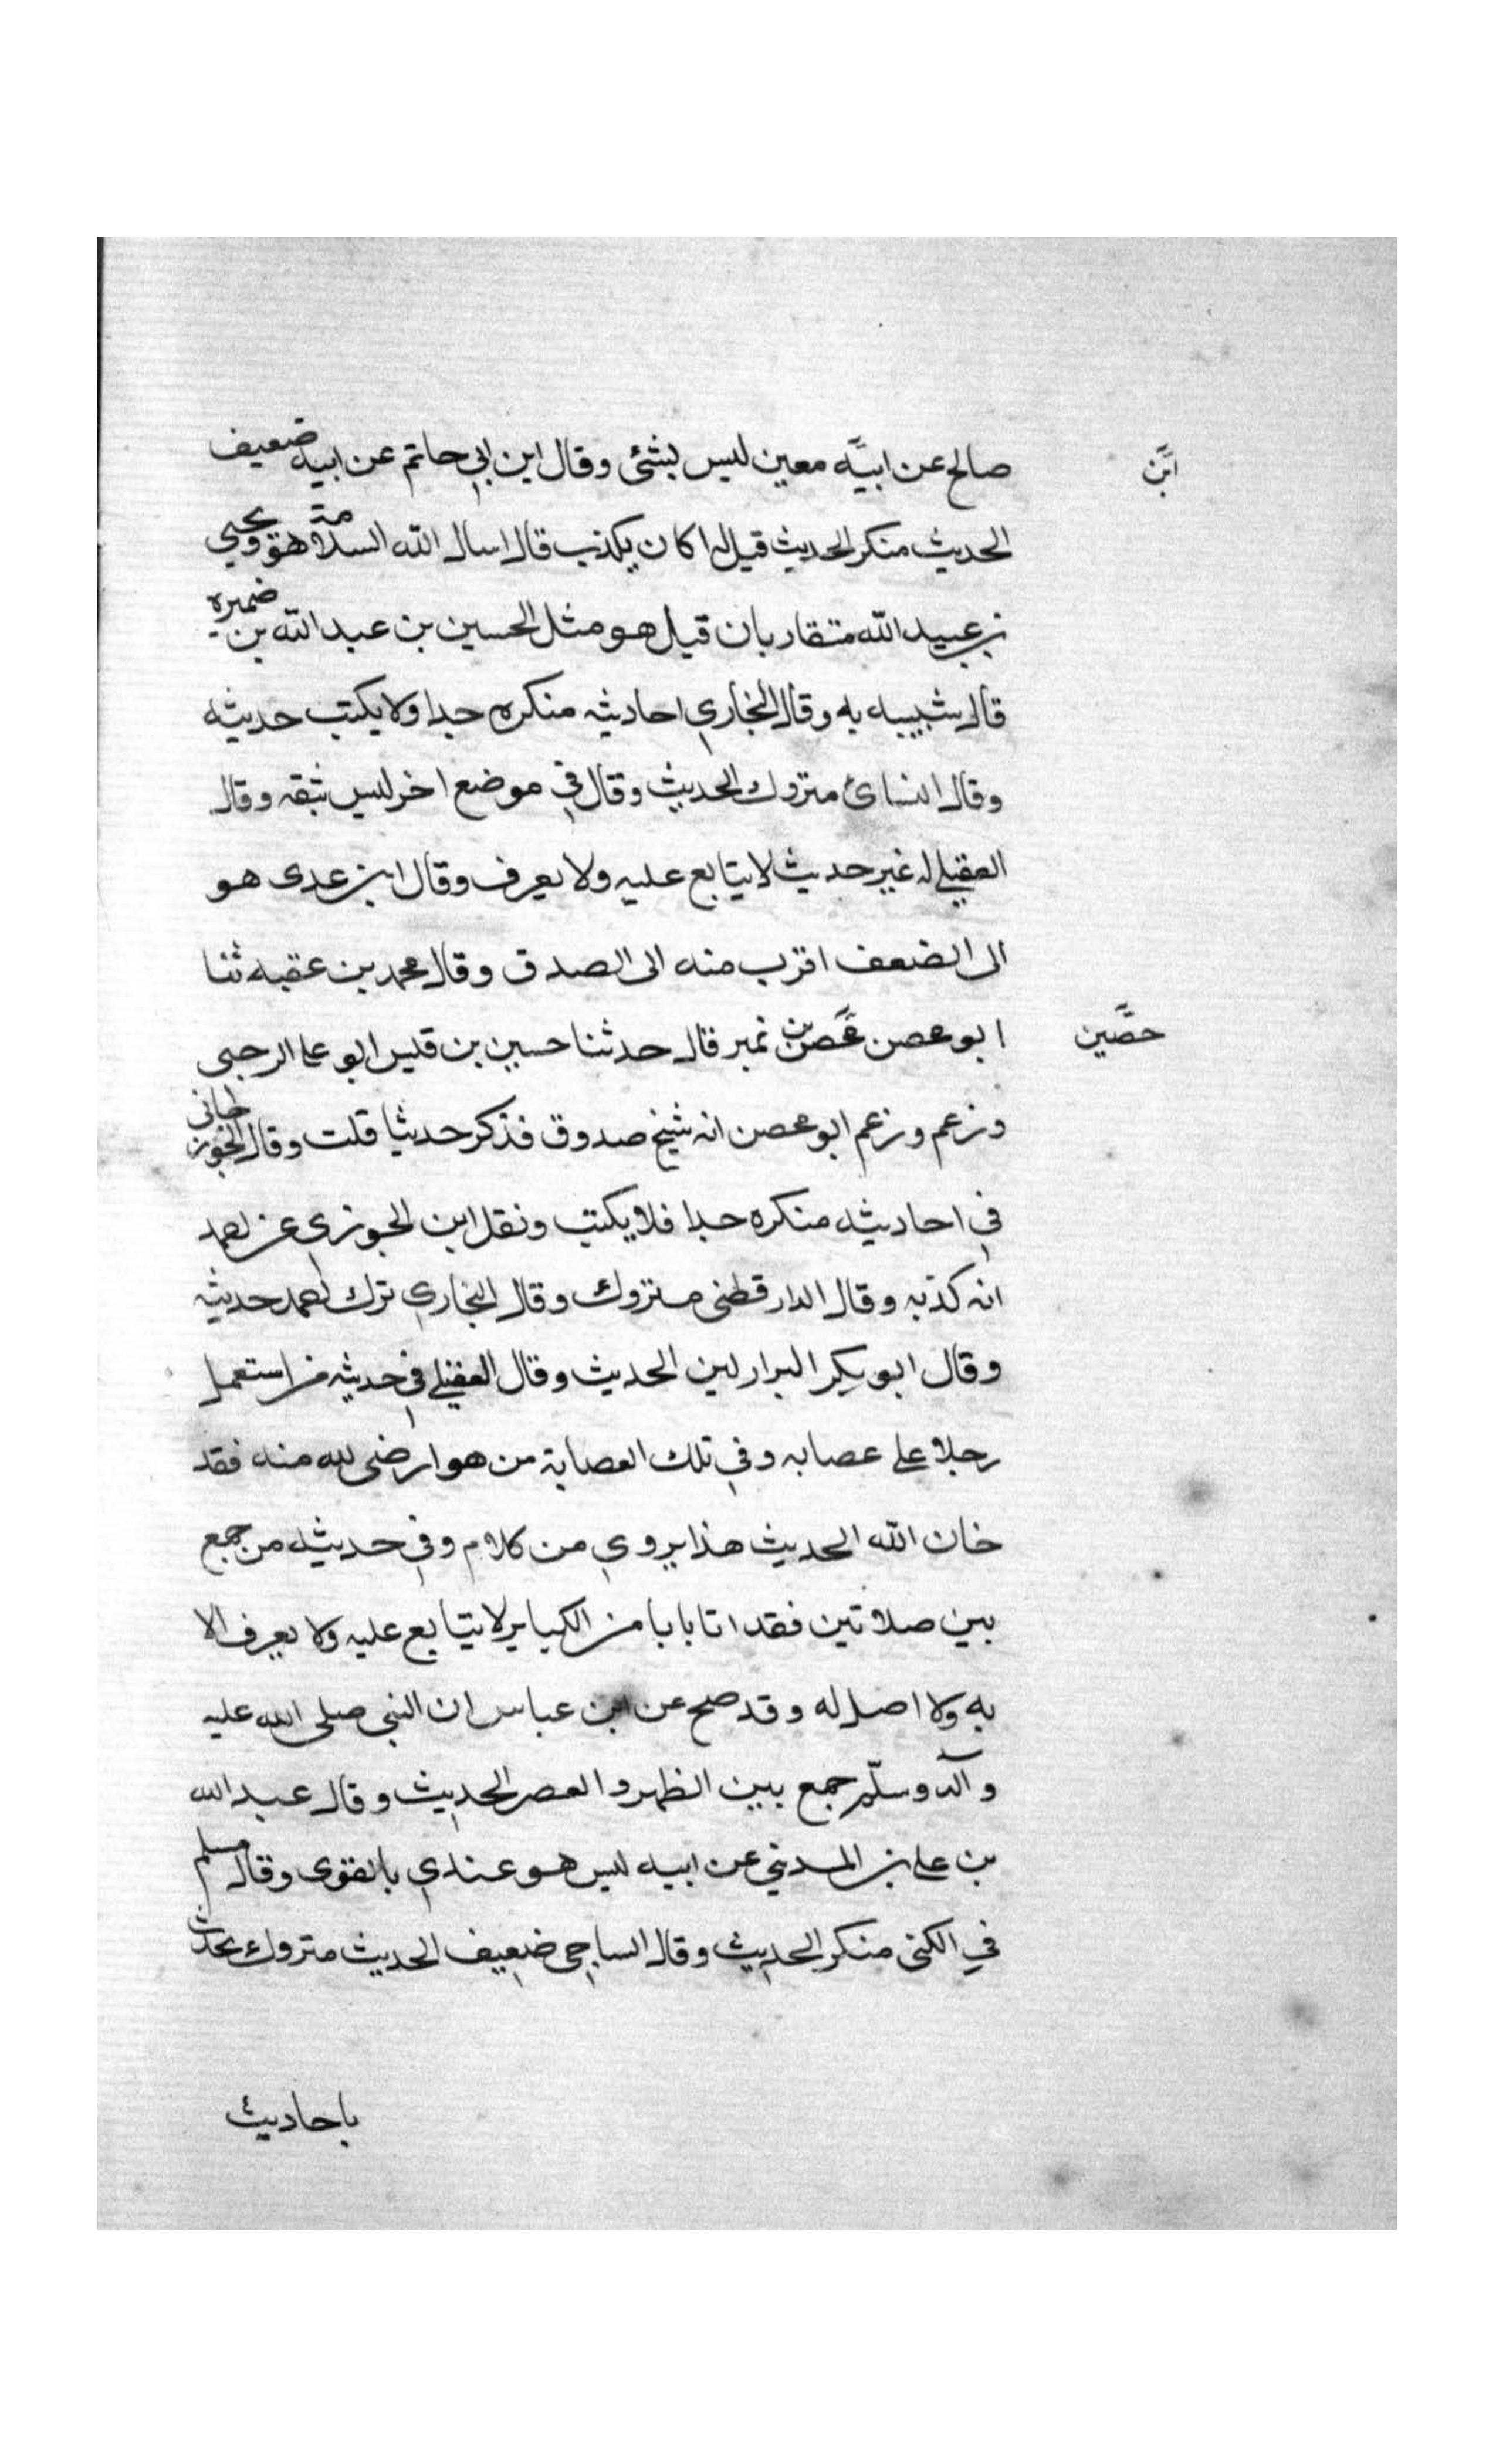 صالح عن ابيه معين ليس بشئ وقال ابن ابي حاتم عن ابيه ضعيف
ابن
الحديث منكر الحديث قيل له اكان يكذب قال اسال الله السلامة هو ويحيي
بن عبيد الله متقاربان قيل هو مثل الحسين بن عبد الله بن ضميره
قال شبيه به وقال البخاري احاديثه منكره جدا ولا يكتب حديثه
وقال النسائ متروك الحديث وقال في موضع اخر ليس بثقه وقال
العقيلي له غير حديث لا يتابع عليه ولا يعرف وقال ابن عدى هو
الى الضعف اقرب منه الى الصدق وقال محمد بن عقبه ثنا
ابو محصن محصن بن نمير قال حدثنا حسين بن قيس ابو على الرحبى
حصين
وزعم وزعم ابو محصن انه شيخ صدوق فذكر حديثا قلت وقال الجوزجانى
في احاديثه منكره جدا فلا يكتب ونقل ابن الجوزي عن احمد
انه كذبه وقال الدارقطنى متروك وقال البخاري ترك احمد حديثه
وقال ابو بكر البزار لين الحديث وقال العقيلي في حديثه من استعمل
رجلا على عصابه وفي تلك العصابة من هو ارضى لله منه فقد
خان الله الحديث هذا يروي من كلام وفي حديثه من جمع
بين صلاتين فقد اتا بابا من الكباير لا يتابع عليه ولا يعرف الا
به ولا اصل له وقد صح عن ابن عباس ان النبي صلى الله عليه
وآله وسلّم جمع بين الظهر والعصر الحديث وقال عبد الله
بن على بن المديني عن ابيه ليس هو عندي بالقوى وقال مسلم
في الكنى منكر الحديث وقال الساجى ضعيف الحديث متروك يحدث
باحاديث